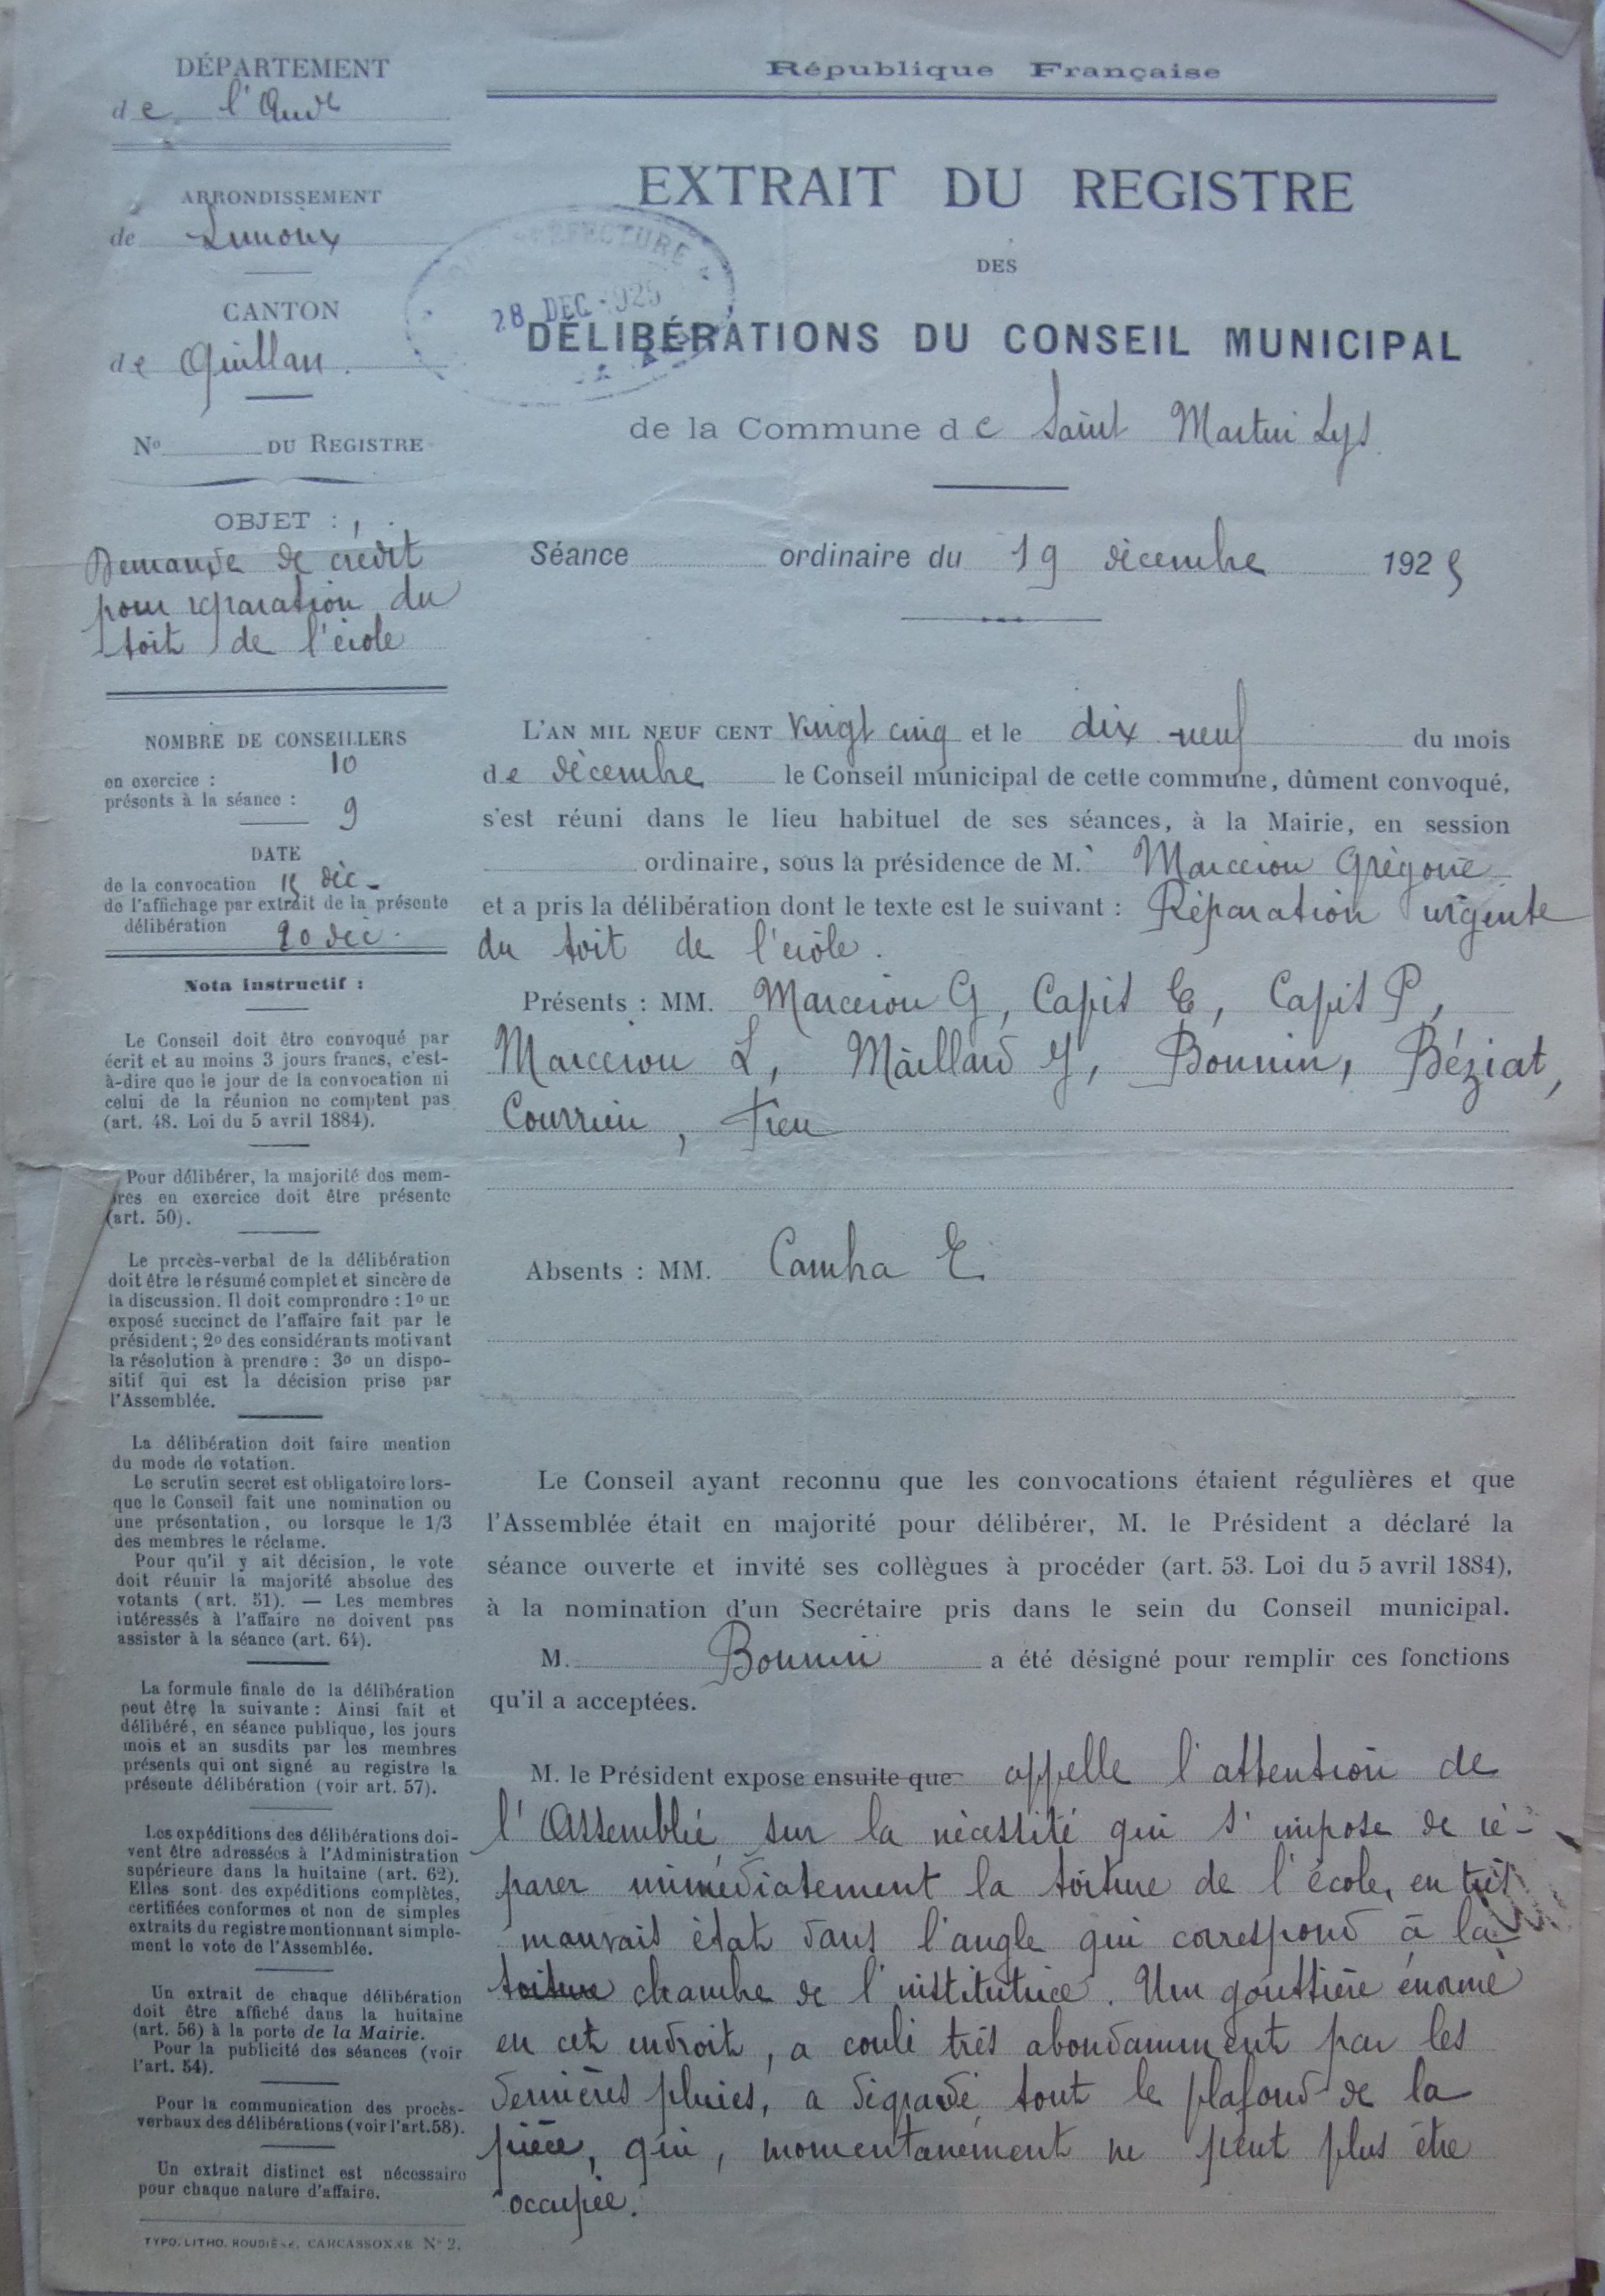 DÉPARTEMENT
de l'Aude
ARRONDISSEMENT
de Limoux
CANTON
de Quillan.
No DU REGISTRE
OBJET :
Demande de crédit
pour réparation du
toit de l'école
NOMBRE DE CONSEILLERS
en exercice : 10
présents à la séance : 9
DATE
de la convocation 15 déc.
de l'affichage par extrait de la présente
délibération 20 déc.
Nota instructif :
Le Conseil doit être convoqué par
écrit et au moins 3 jours francs, c'est-
à-dire que le jour de la convocation ni
celui de la réunion ne comptent pas
(art. 48. Loi du 5 avril 1884).
Pour délibérer, la majorité des mem-
bres en exercice doit être présente
(art. 50).
Le procès-verbal de la délibération
doit être le résumé complet et sincère de
la discussion. Il doit comprendre : 1o un
exposé succinct de l'affaire fait par le
président ; 2o des considérants motivant
la résolution à prendre : 3o un dispo-
sitif qui est la décision prise par
l'Assemblée.
La délibération doit faire mention
du mode de votation.
Le scrutin secret est obligatoire lors-
que le Conseil fait une nomination ou
une présentation, ou lorsque le 1/3
des membres le réclame.
Pour qu'il y ait décision, le vote
doit réunir la majorité absolue des
votants (art. 51). — Les membres
intéressés à l'affaire ne doivent pas
assister à la séance (art. 64).
La formule finale de la délibération
peut être la suivante : Ainsi fait et
délibéré, en séance publique, les jours
mois et an susdits par les membres
présents qui ont signé au registre la
présente délibération (voir art. 57).
Les expéditions des délibérations doi-
vent être adressées à l'Administration
supérieure dans la huitaine (art. 62).
Elles sont des expéditions complètes,
certifiées conformes et non de simples
extraits du registre mentionnant simple-
ment le vote de l'Assemblée.
Un extrait de chaque délibération
doit être affiché dans la huitaine
(art. 56) à la porte de la Mairie.
Pour la publicité des séances (voir
l'art. 54).
Pour la communication des procès-
verbaux des délibérations (voir l'art. 58).
Un extrait distinct est nécessaire
pour chaque nature d'affaire.
TYPO. LITHO. ROUDIÈRE, CARCASSONNE No 2.
République Française
EXTRAIT DU REGISTRE
DES
28 DEC 1925
DÉLIBÉRATIONS DU CONSEIL MUNICIPAL
de la Commune de Saint Martin Lys
Séance ordinaire du 19 décembre 1925
L'AN MIL NEUF CENT vingt cinq et le dix neuf du mois
de décembre le Conseil municipal de cette commune, dûment convoqué,
s'est réuni dans le lieu habituel de ses séances, à la Mairie, en session
ordinaire, sous la présidence de M. Marcerou Grégoire
et a pris la délibération dont le texte est le suivant : Réparation urgente
du toit de l'école.
Présents : MM. Marcerou G, Capit E, Capit P,
Marcerou L, Maillard J, Bonnin, Béziat,
Courrieu, Fieu
Absents : MM. Camba E.
Le Conseil ayant reconnu que les convocations étaient régulières et que
l'Assemblée était en majorité pour délibérer, M. le Président a déclaré la
séance ouverte et invité ses collègues à procéder (art. 53. Loi du 5 avril 1884),
à la nomination d'un Secrétaire pris dans le sein du Conseil municipal.
M. Bonnin a été désigné pour remplir ces fonctions
qu'il a acceptées.
M. le Président expose ensuite que appelle l'attention de
l'Assemblée sur la nécessité qui s'impose de ré-
parer immédiatement la toiture de l'école, en très
mauvais état dans l'angle qui correspond à la
toiture chambre de l'institutrice. Une gouttière énorme
en cet endroit, a coulé très abondamment par les
dernières pluies, a dégradé tout le plafond de la
pièce, qui, momentanément ne peut plus être
occupée.